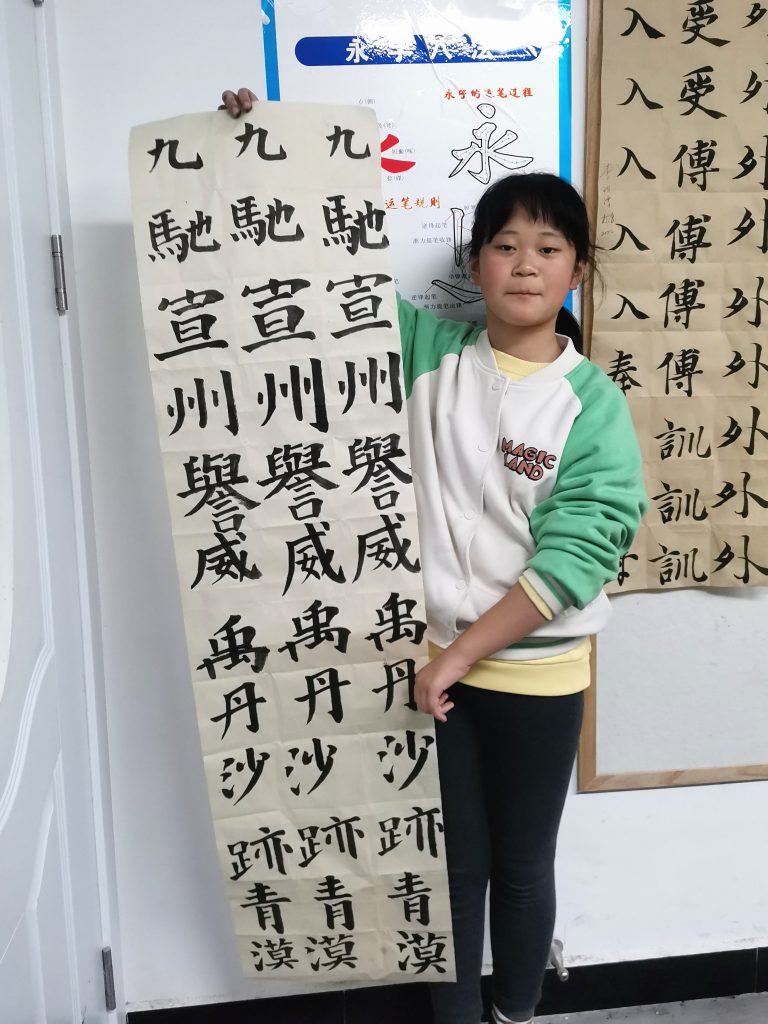 永字八法
永字的运笔过程
永
运笔规则
逆锋起笔
逆锋起笔
九九九
馳馳馳
宣宣宣
州州州
譽譽譽
威威威
禹禹禹
丹丹丹
沙沙沙
跡跡跡
青青青
漠漠漠
MAGIC
LAND
入受外
入受外
入傅外
入傅外
入傅外
奉傅外
訓外
訓外
訓外